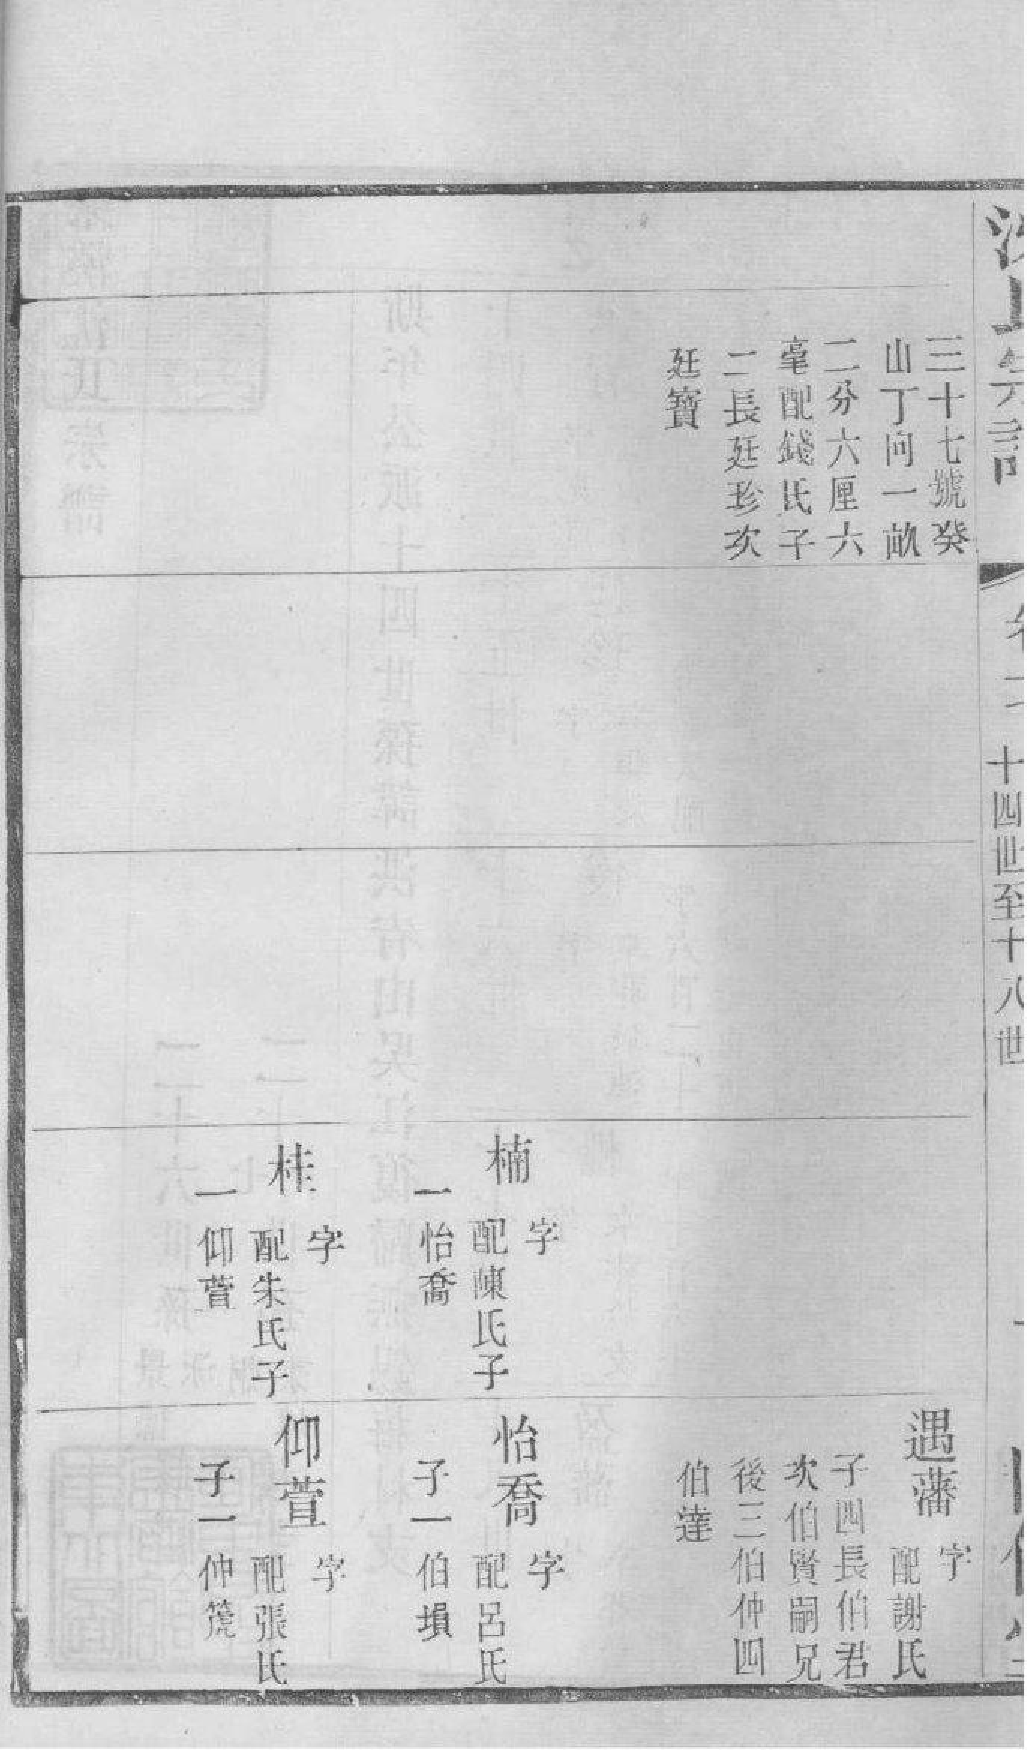 氏宗譜
卷二 十四世至十八世
三十七號癸
山丁向一畝
二分六厘六
毫配錢氏子
二長廷珍次
廷寶
楠
字
配陳氏子
一怡喬
桂
字
配朱氏子
一仰萱
遇藩
字
配謝氏
子四長伯君
次伯賢嗣兄
後三伯仲四
伯達
怡喬
字
配呂氏
子一伯塤
仰萱
字
配張氏
子一仲箎